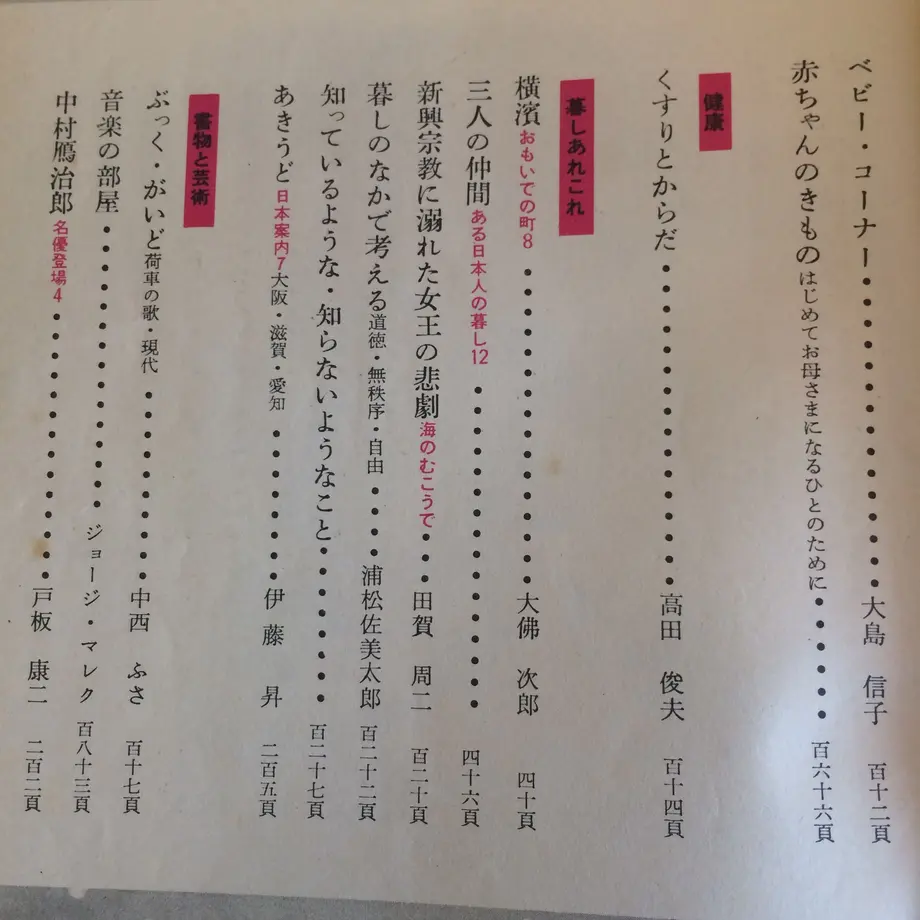 ベビー・コーナー・・・・・・・・・・・・大島 信子 百十二頁
赤ちゃんのきもの はじめてお母さまになるひとのために・・・・・・百六十六頁
健康
くすりとからだ・・・・・・・・・・・・高田 俊夫 百十四頁
暮しあれこれ
横濱 おもいでの町8・・・・・・・・・・・・大佛 次郎 四十頁
三人の仲間 ある日本人の暮し12・・・・・・・・・・・・四十六頁
新興宗教に溺れた女王の悲劇 海のむこうで・・・田賀 周二 百二十頁
暮しのなかで考える 道徳・無秩序・自由・・・・浦松佐美太郎 百二十二頁
知っているような・知らないようなこと・・・・・・・・百二十七頁
あきうど 日本案内7 大阪・滋賀・愛知・・・・・・伊藤 昇 二百五頁
書物と芸術
ぶっく・がいど 荷車の歌・現代・・・・・・・・中西 ふさ 百十七頁
音楽の部屋・・・・・・・・・・・・ジョージ・マレク 百八十三頁
中村鴈治郎 名優登場4・・・・・・・・・・・・戸板 康二 二百二頁